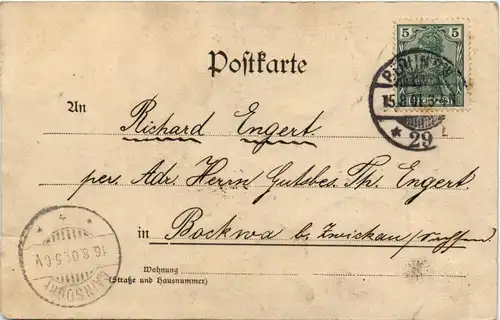 5 5
Postkarte
15.8.01.
* 29
An
Richard Engert.
per. Adr. Herrn Gutsbes. Th. Engert.
in Bockwa b. Zwickau /Sachsen
16.8.01.5-6V
Wohnung
(Straße und Hausnummer)